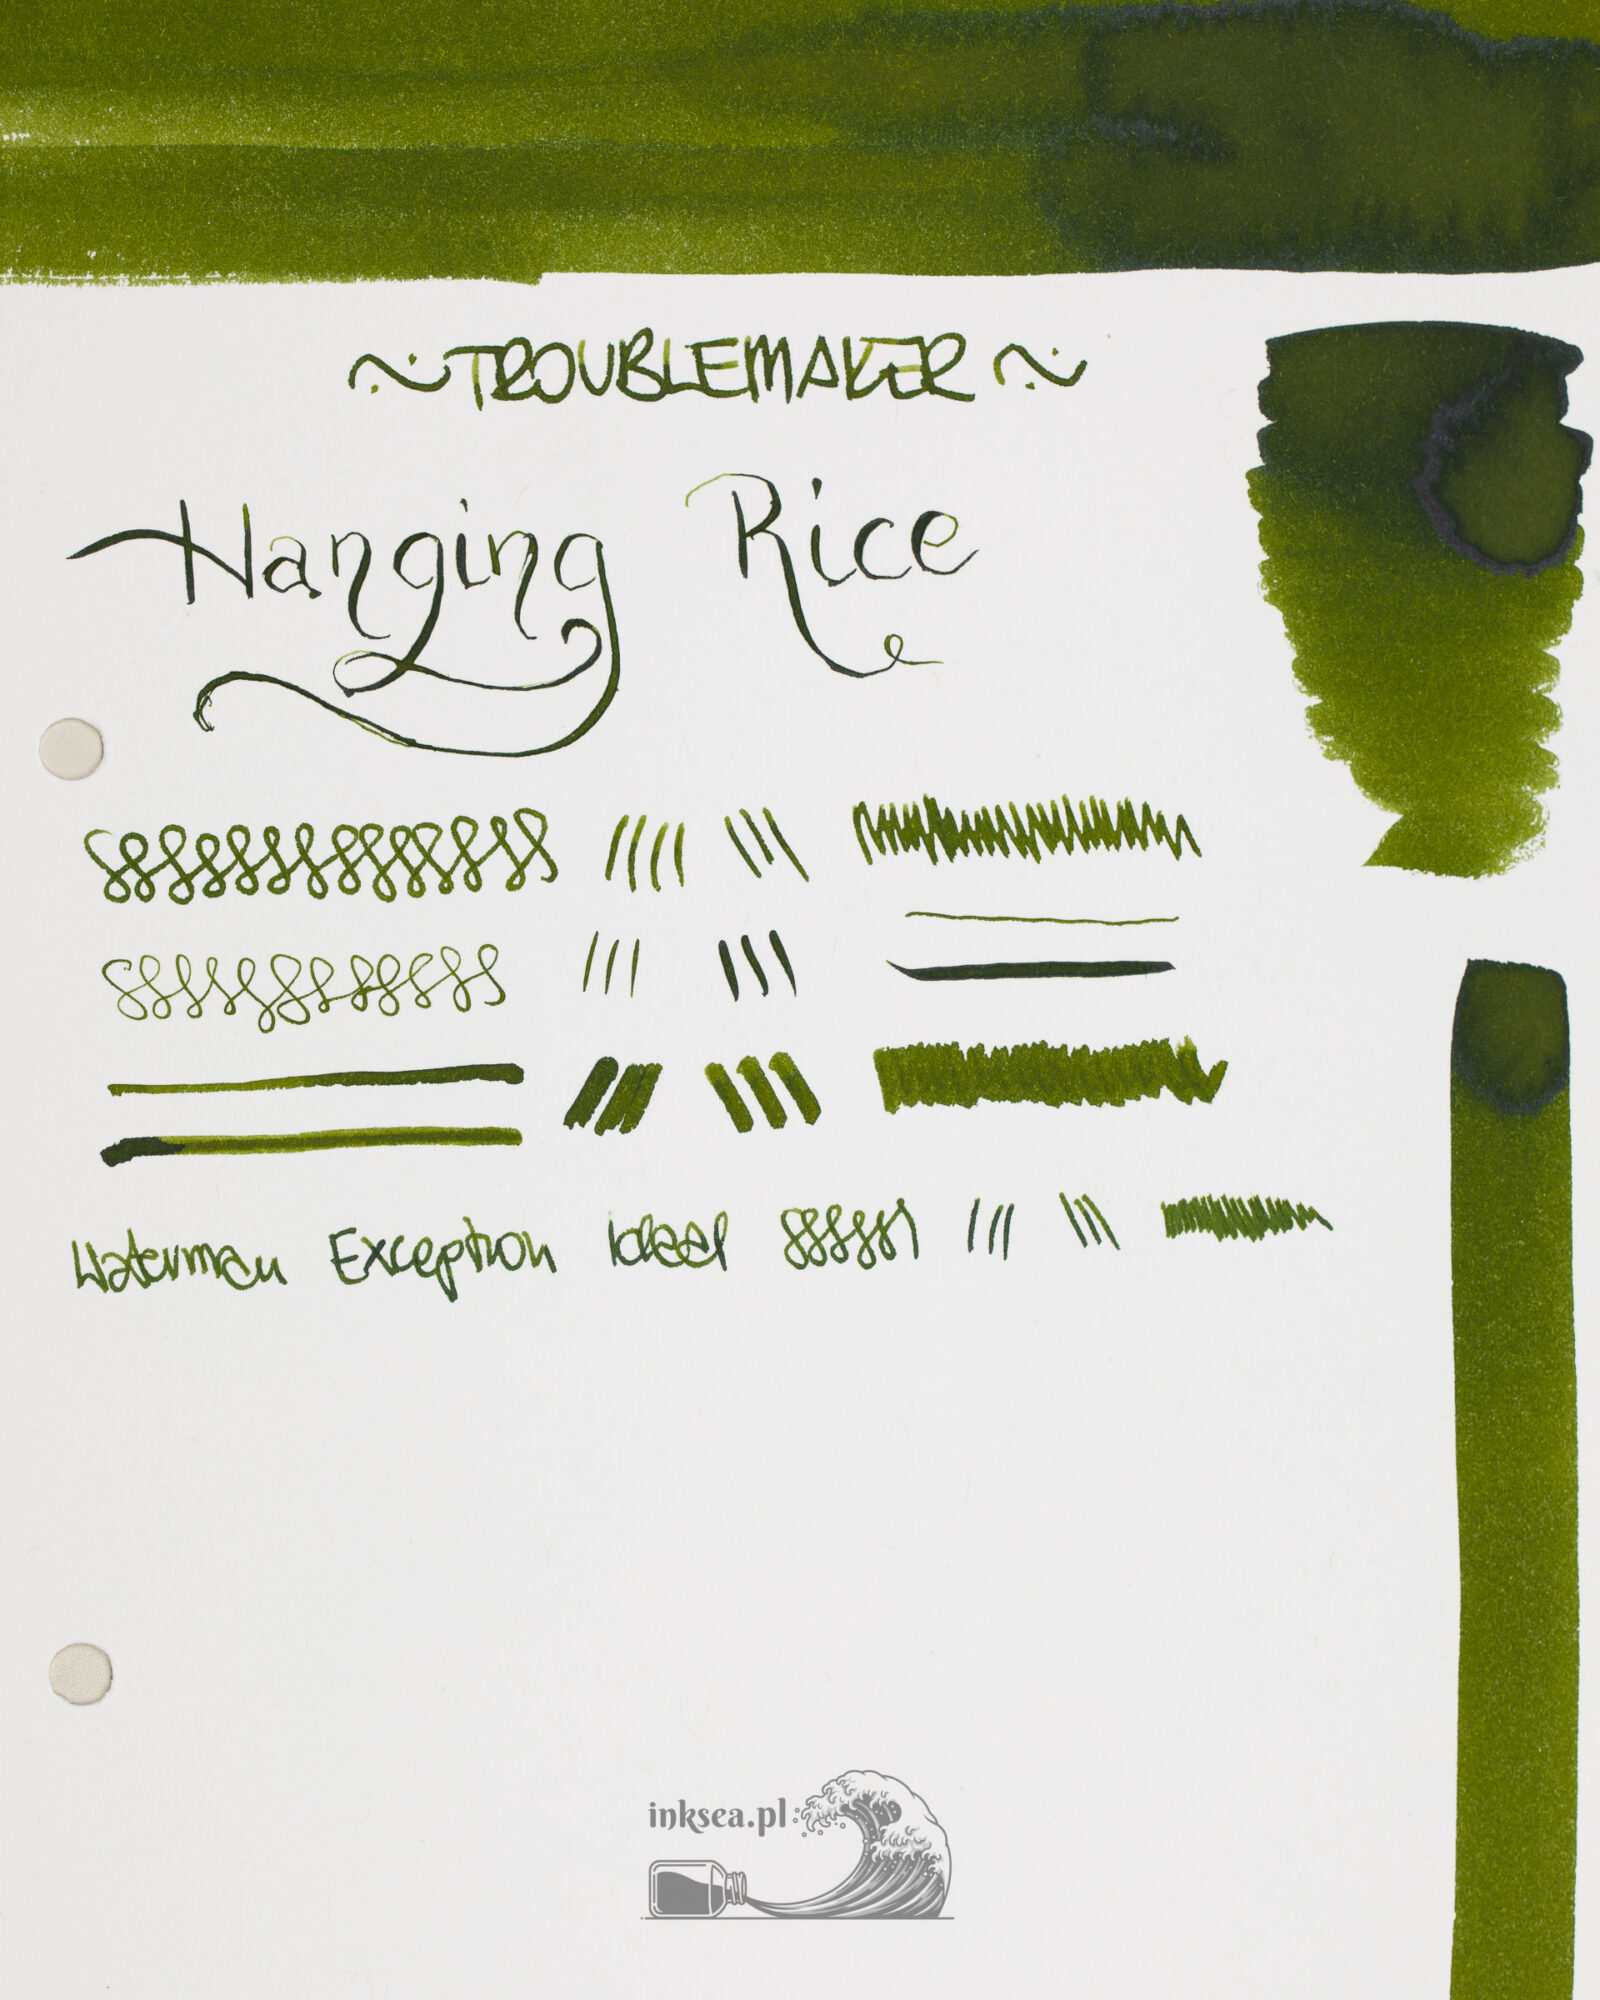 ~ TROUBLEMAKER ~
Hanging Rice
Waterman Exception Ideal
inksea.pl